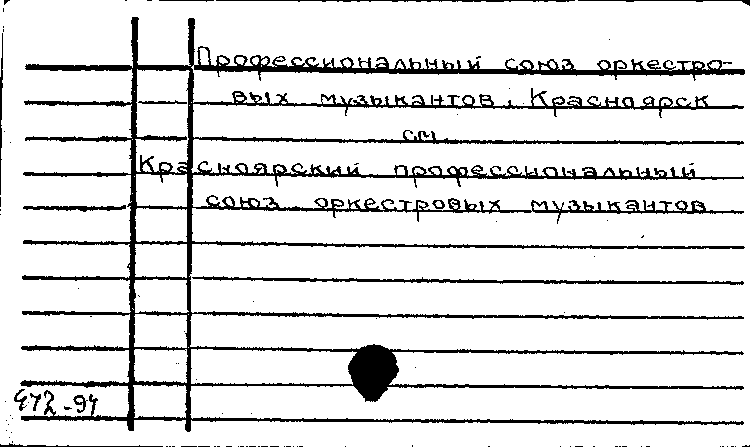 Профессиональный союз оркестро-
вых музыкантов. Красноярск
см.
Красноярский профессиональный
союз оркестровых музыкантов
472-94